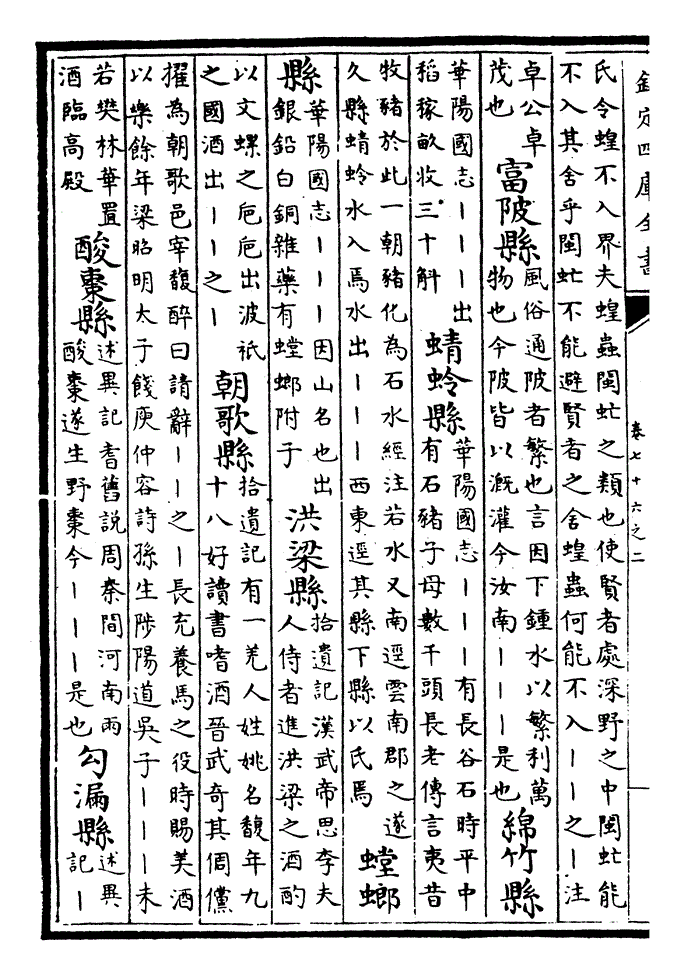 欽定四庫全書
卷七十六之二
氏令蝗不入界夫蝗蟲閩虻之類也使賢者處深野之中閩虻能
不入其舍乎閩虻不能避賢者之舍蝗蟲何能不入丨丨之丨注
卓公卓
茂也
富陂縣
風俗通陂者繁也言因下鍾水以繁利萬
物也今陂皆以溉灌今汝南丨丨丨是也
綿竹縣
華陽國志丨丨丨出
稻稼畝收三十斛
蜻蛉縣
華陽國志丨丨丨有長谷石時平中
有石豬子母數千頭長老傳言夷昔
牧豬於此一朝豬化為石水經注若水又南逕雲南郡之遂
久縣蜻蛉水入焉水出丨丨丨西東逕其縣下縣以氏焉
螳螂
縣
華陽國志丨丨丨因山名也出
銀鉛白銅雜藥有螳螂附子
洪梁縣
拾遺記漢武帝思李夫
人侍者進洪梁之酒酌
以文螺之卮卮出波祗
之國酒出丨丨之丨
朝歌縣
拾遺記有一羌人姓姚名馥年九
十八好讀書嗜酒晉武奇其倜儻
擢為朝歌邑宰馥醉曰請辭丨丨之丨長充養馬之役時賜美酒
以樂餘年梁昭明太子餞庾仲容詩孫生陟陽道吳子丨丨丨未
若樊林華置
酒臨高殿
酸棗縣
述異記耆舊說周秦間河南雨
酸棗遂生野棗今丨丨丨是也
勾漏縣
述異
記丨